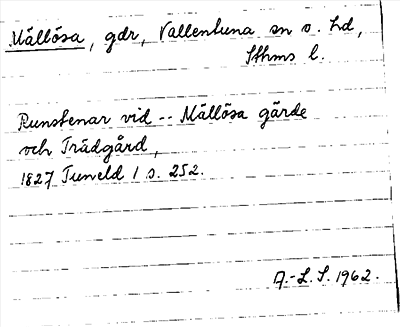 Mällösa, gdr, Vallentuna sn o. hd,
Sthms l.
Runstenar vid -- Mällösa gärde
och Trädgård,
1827 Tuneld 1 s. 252.
A.-L. S. 1962.